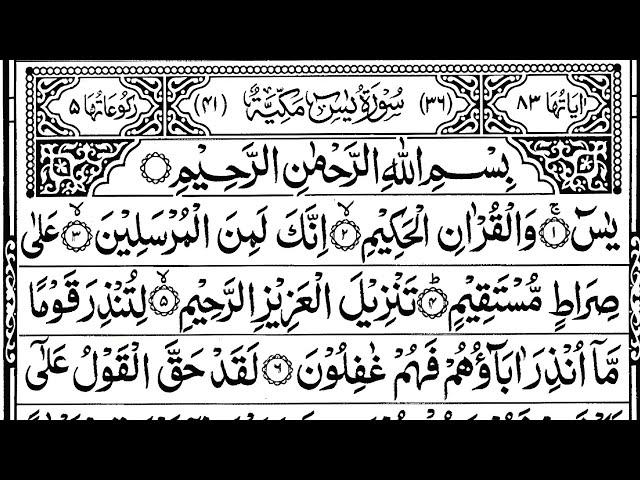 اٰیاتُها ٨٣ (٣٦) سُوْرَةُ یٰسٓ مَكِّیَّةٌ (٤١) رُكُوْعَاتُهَا ٥
بِسْمِ اللهِ الرَّحْمٰنِ الرَّحِیْمِ
یٰسٓ ۚ ﴿١﴾ وَالْقُرْاٰنِ الْحَكِیْمِ ۙ ﴿٢﴾ اِنَّكَ لَمِنَ الْمُرْسَلِیْنَ ۙ ﴿٣﴾ عَلٰی
صِرَاطٍ مُّسْتَقِیْمٍ ؕ ﴿٤﴾ تَنْزِیْلَ الْعَزِیْزِ الرَّحِیْمِ ۙ ﴿٥﴾ لِتُنْذِرَ قَوْمًا
مَّاۤ اُنْذِرَ اٰبَآؤُهُمْ فَهُمْ غٰفِلُوْنَ ﴿٦﴾ لَقَدْ حَقَّ الْقَوْلُ عَلٰۤی